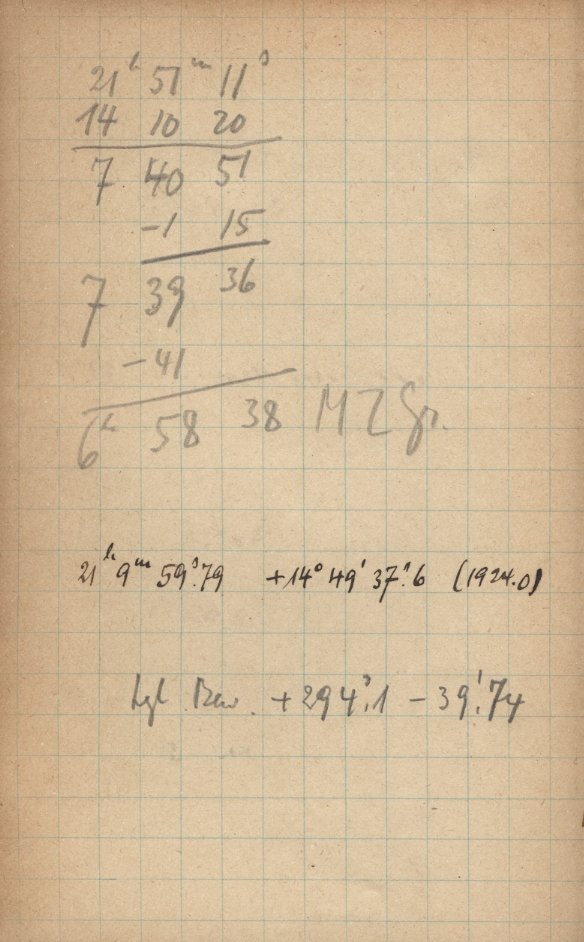 21ʰ 51ᵐ 11ˢ
14 10 20
7 40 51
-1 15
7 39 36
-41
6ʰ 58 38 MZGr.
21ʰ 9ᵐ 59ˢ.79 +14° 49' 37".6 (1924.0)
tgl. Bew. +294ˢ.1 -39'.74